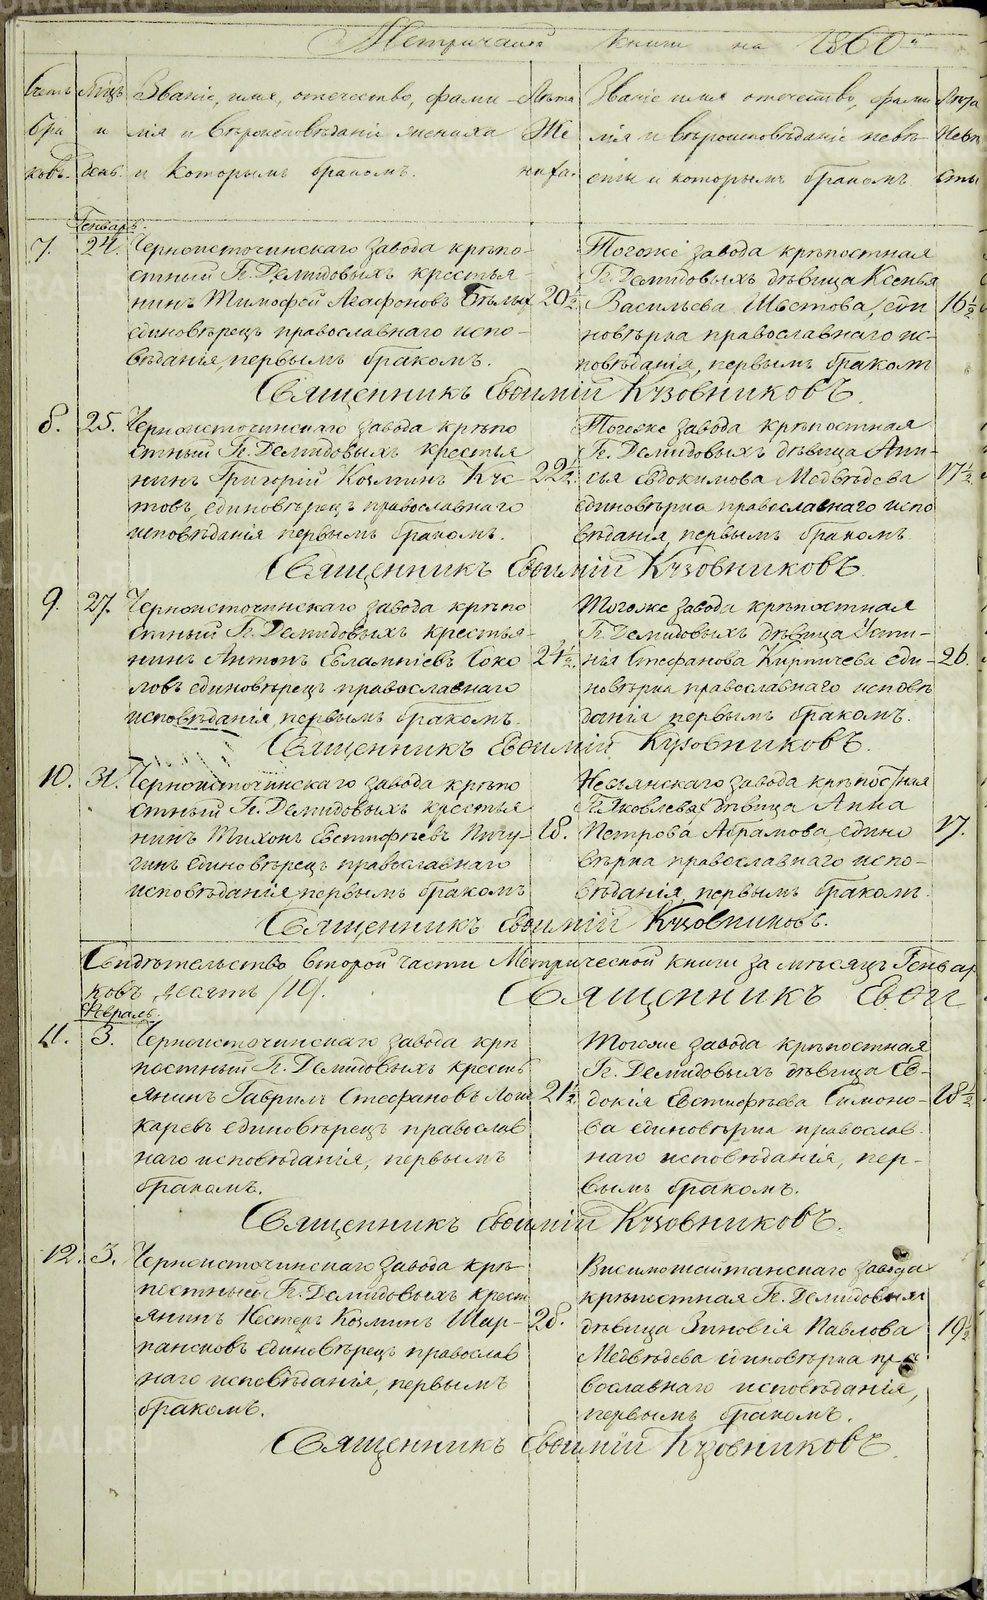 Метричаской книги на 1860 й
Счетъ бра ковъ.
Мѣсцъ и день.
Званіе, имя, отечество, фами-
лія и вѣроисповѣданіе жениха
и которымъ бракомъ.
Лѣта
Же
ниха.
Званіе имя отечество, фами
лія и вѣроисповѣданіе невѣ-
сты и которымъ бракомъ
Лѣта
Невѣ
сты
Генварь.
7. 24. Черноисточинскаго завода крѣпо-
стный Гг. Демидовыхъ крестья-
нинъ Тимофей Агафоновъ Бѣлыхъ
единовѣрецъ православнаго испо-
вѣданія, первымъ бракомъ.
20½
Тогоже завода крѣпостная
Гг. Демидовыхъ дѣвица Ксенья
Васильева Шестова, еди
новѣрка православнаго ис-
повѣданія, первымъ бракомъ
16½
Священникъ Евѳимій Кузовниковъ.
8. 25. Черноисточинскаго завода крѣпо
стный Гг. Демидовыхъ крестья
нинъ Григорій Козминъ Кус-
товъ, единовѣрецъ православнаго
исповѣданія первымъ бракомъ.
22½
Тогоже завода крѣпостная
Гг. Демидовыхъ дѣвица Ани-
сья Евдокимова Медвѣдева
единовѣрка православнаго испо
вѣданія, первымъ бракомъ
17½
Священникъ Евѳимій Кузовниковъ.
9. 27. Черноисточинскаго завода крѣпо
стный Гг. Демидовыхъ крестья-
нинъ Антонъ Евлампіевъ Соко
ловъ единовѣрецъ православнаго
исповѣданія, первымъ бракомъ.
21½
Тогоже завода крѣпостная
Гг. Демидовыхъ дѣвица Усти-
нія Стефанова Кирпичева еди-
новѣрка православнаго исповѣ
данія первымъ бракомъ.
26.
Священникъ Евѳимій Кузовниковъ.
10. 31. Черноисточинскаго завода крѣпо
стный Гг. Демидовыхъ крестья
нинъ Тихонъ Евстифѣевъ Пичу-
гинъ единовѣрецъ православнаго
исповѣданія, первымъ бракомъ
18.
Невьянскаго завода крѣпостная
Гг. Яковлевыхъ дѣвица Анна
Петрова Абрамова едино
вѣрка православнаго испо-
вѣданія, первымъ бракомъ.
17.
Священникъ Евѳимій Кузовниковъ.
Свидѣтельство второй части Метрической книги за мѣсяцъ Генвар
ковъ десять /10/. Священникъ Евѳи
Февраль.
11. 3. Черноисточинскаго завода крѣ
постный Гг. Демидовыхъ кресть
янинъ Гаврилъ Стефановъ Лош
каревъ единовѣрецъ православ
наго исповѣданія, первымъ
бракомъ.
21½
Тогоже завода крѣпостная
Гг. Демидовыхъ дѣвица Ев-
докія Евстифѣева Симоно-
ва единовѣрка православ-
наго исповѣданія, пер-
вымъ бракомъ.
18½
Священникъ Евѳимій Кузовниковъ.
12. 3. Черноисточинскаго завода крѣ-
постный Гг. Демидовыхъ крест
янинъ Нестеръ Козминъ Шар-
панковъ единовѣрецъ православ
наго исповѣданія, первымъ
бракомъ.
28.
Висимошайтанскаго завода
крѣпостная Гг. Демидовыхъ
дѣвица Зиновія Павлова
Медвѣдева единовѣрка пра
вославнаго исповѣданія,
первымъ бракомъ.
19½
Священникъ Евѳимій Кузовниковъ.